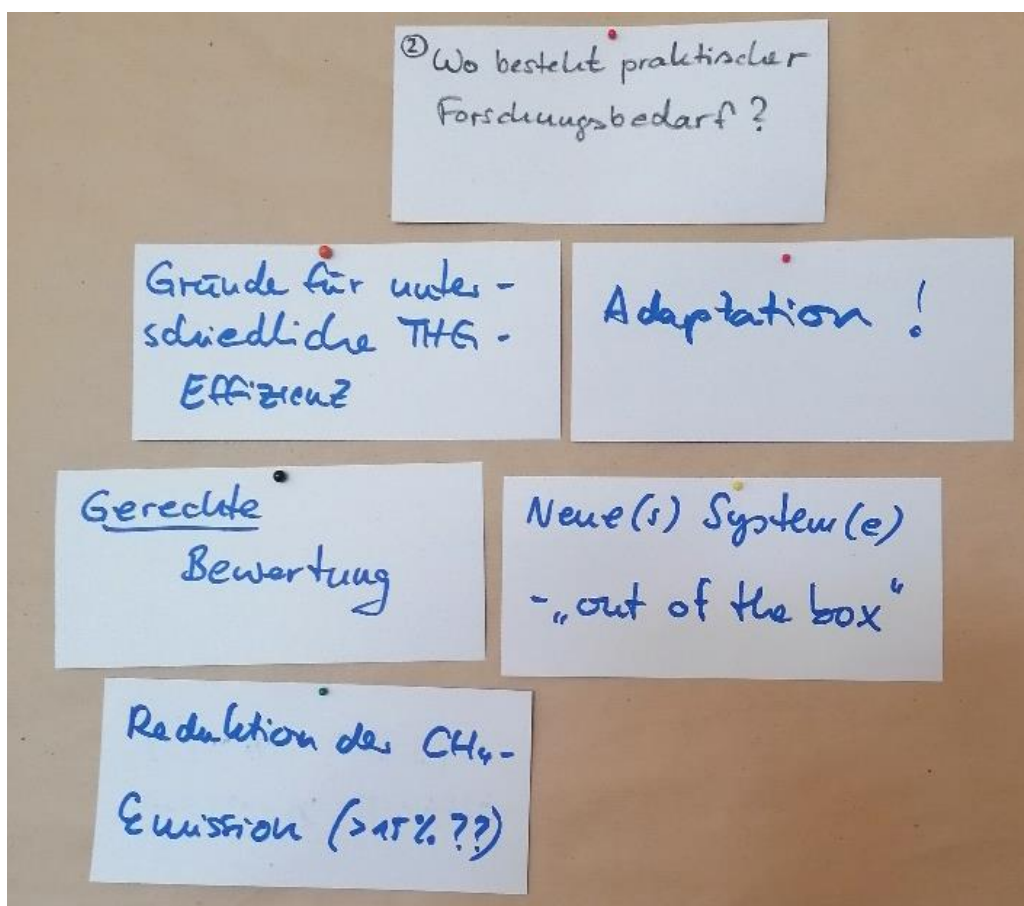 ② Wo besteht praktischer
Forschungsbedarf?
Gründe für unter-
schiedliche THG-
Effizienz
Adaptation!
Gerechte
Bewertung
Neue(s) System(e)
- „out of the box“
Reduktion der CH₄-
Emission (>15% ??)